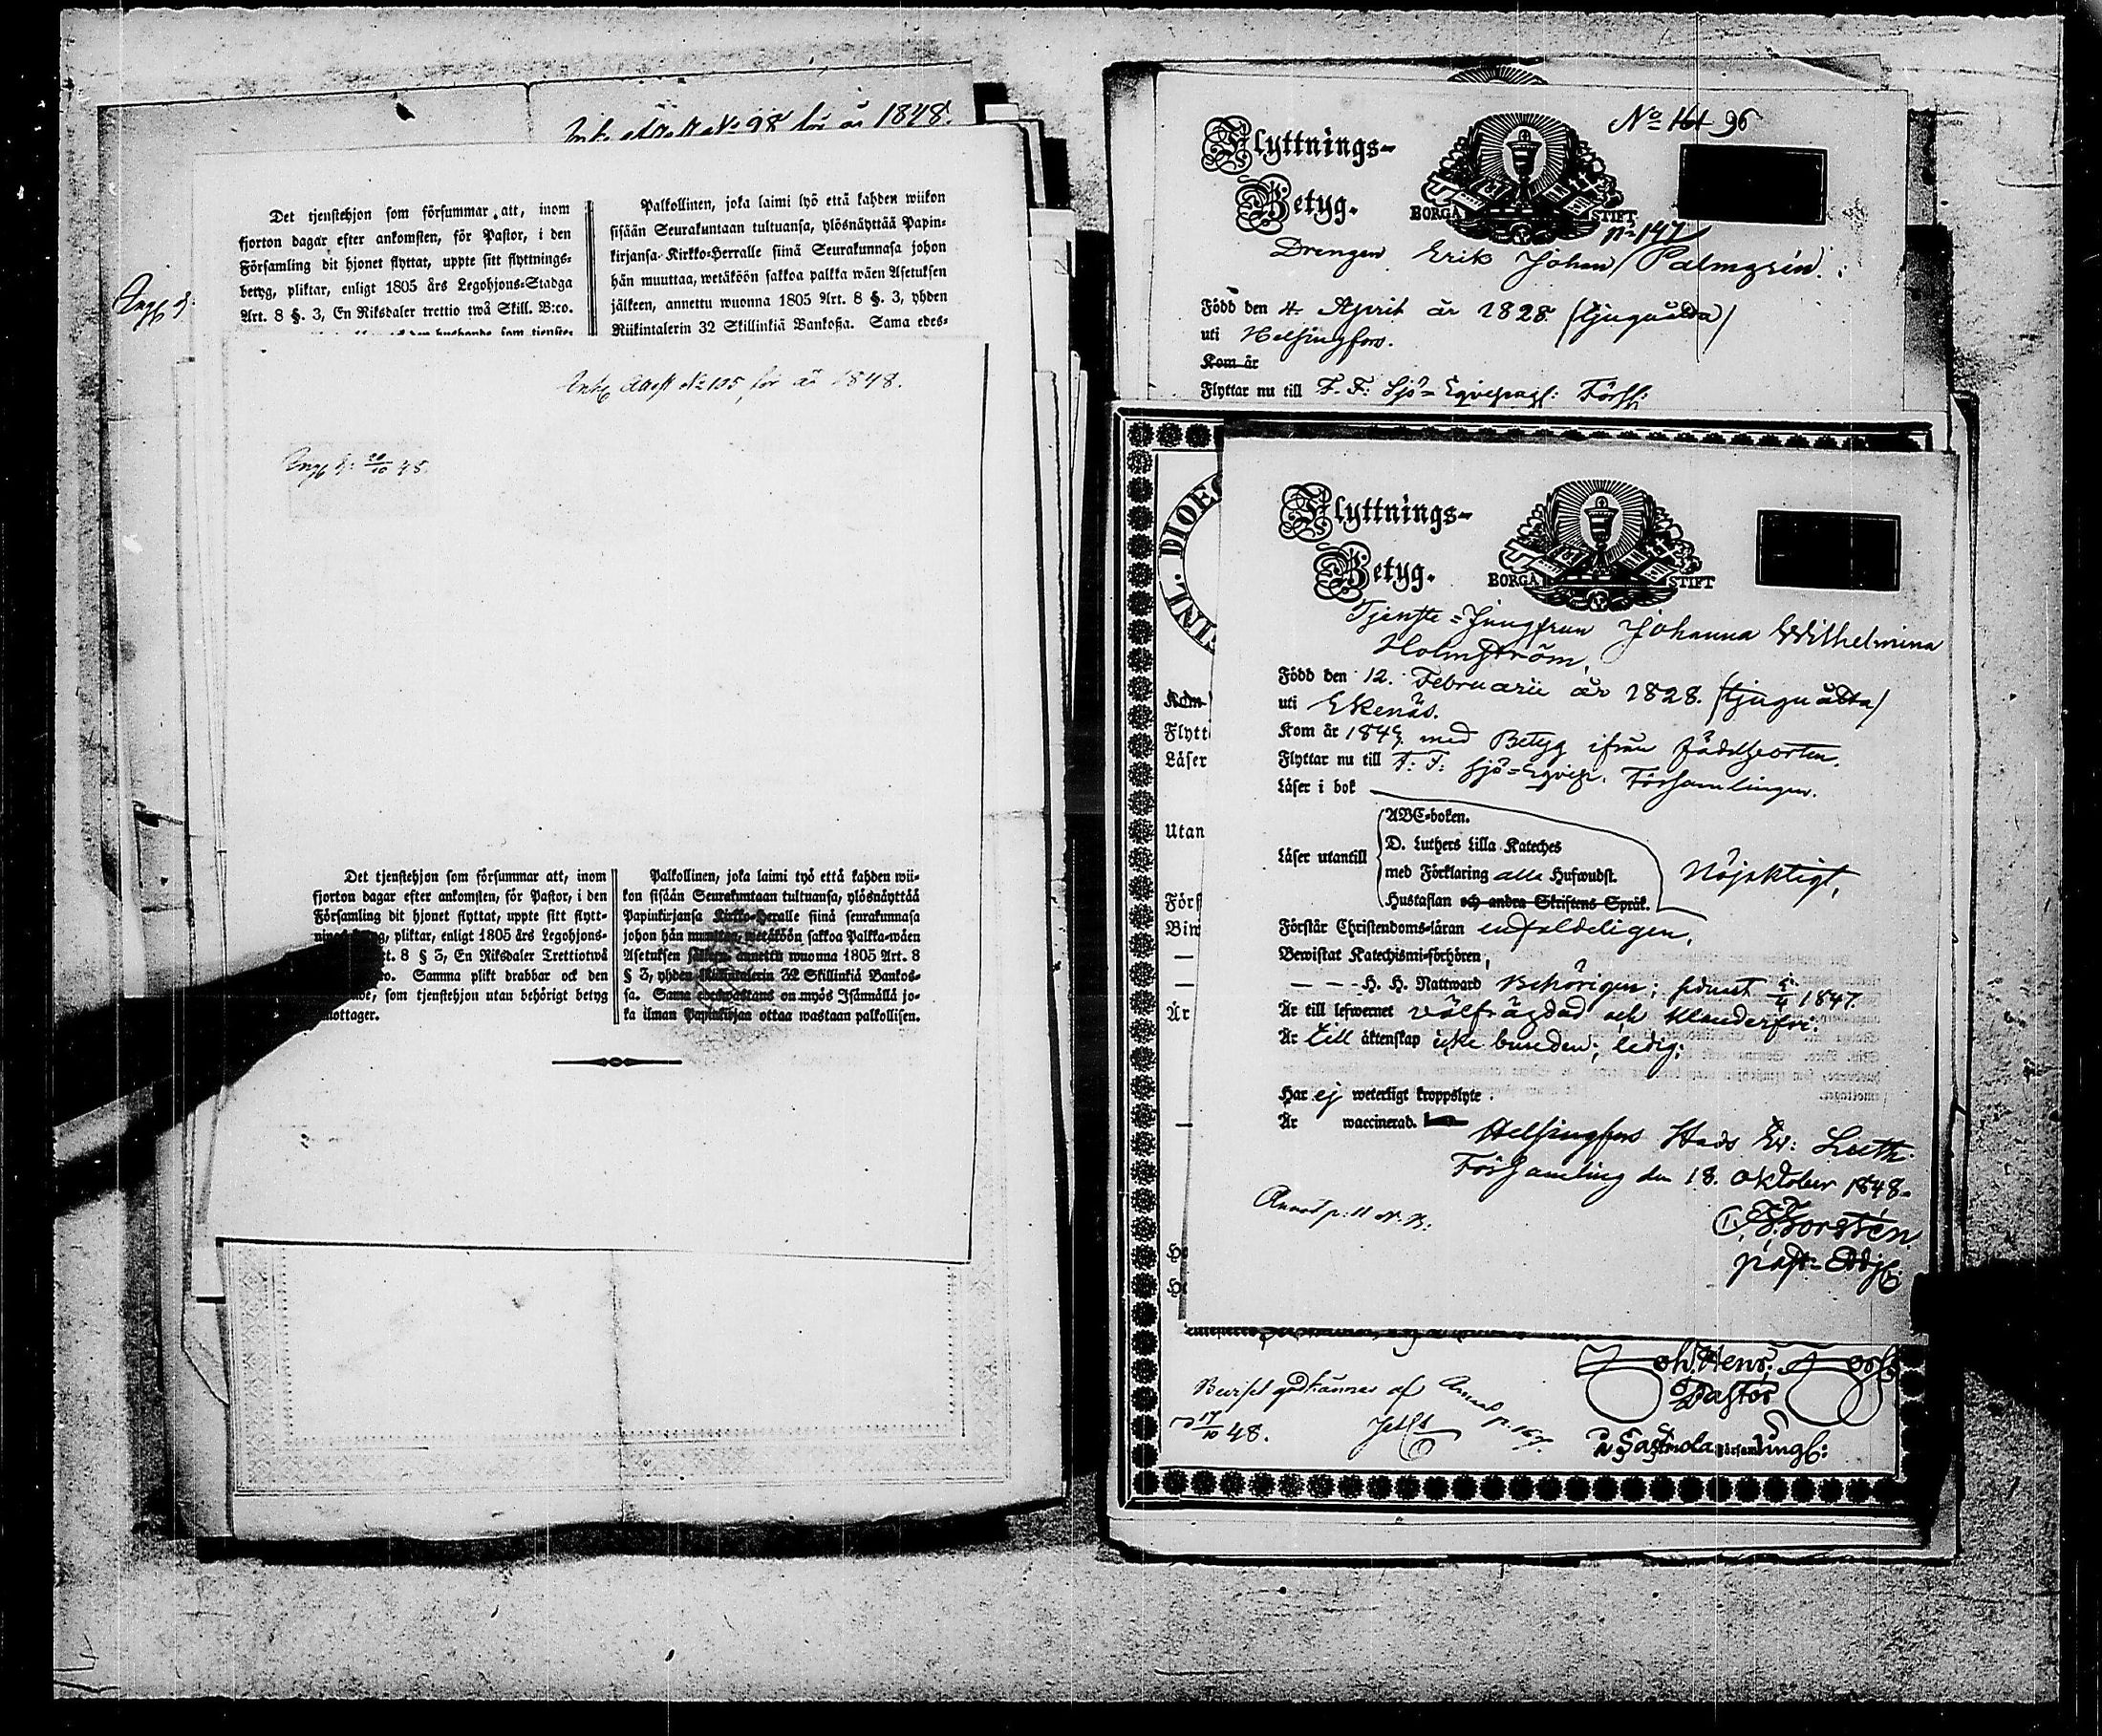 för år 1848.
Det tjenstehjon som försummar att, inom
fjorton dagar efter ankomsten, för Pastor, i den
Församling dit hjonet flyttat, uppte sitt flyttnings-
betyg, pliktar, enligt 1805 års Legohjons-Stadga
Art. 8 §. 3, En Riksdaler trettio twå Skill. B:co.
Palkollinen, joka laimi lyö että kahden wiikon
sisään Seurakuntaan tultuansa, ylösnäyttää Papin-
kirjansa Kirkko-Herralle siinä Seurakunnasa johon
hän muuttaa, wetäköön sakkoa palkka wäen Asetuksen
jälkeen, annettu wuonna 1805 Art. 8 §. 3, yhden
Riikintalerin 32 Skillinkiä Bankoßa. Sama edes-
Attest No 105, för år 1848.
Det tjenstehjon som försummar att, inom
fjorton dagar efter ankomsten, för Pastor, i den
Församling dit hjonet flyttat, uppte sitt flytt-
pliktar, enligt 1805 års Legohjons-
8 § 3, En Riksdaler Trettiotwå
Samma plikt drabbar ock den
som tjenstehjon utan behörigt betyg
mottager.
Palkollinen, joka laimi työ että kahden wii-
kon sisään Seurakuntaan tultuansa, ylösnäyttää
Papinkirjansa Kirkko-Heralle siinä seurakunnasa
johon hän muuttaa, wetäköön sakkoa Palkka-wäen
Asetuksen jälkeen annettu wuonna 1805 Art. 8
§ 3, yhden Riikintalerin 32 Skillinkiä Bankos-
sa. Sama edeswastaus on myös Isännällä jo-
ka ilman Papinkirjaa ottaa wastaan palkollisen.
No 96
Flyttnings-
Betyg.
BORGÅ STIFT
p. 147
Drengen Erik Johan Palmgrén.
Född den 4. April år 1828. (tjuguåtta)
uti Helsingfors.
Kom år
Flyttar nu till F. F. Sjö-Equipagf: Förs:
INL. DIOEC
Kom
Flytt
Läser
Utan
Förs
Biw
Är
Flyttnings-
Betyg.
BORGÅ STIFT
Tjenste-Jungfrun Johanna Wilhelmina
Holmström,
Född den 12. Februarii år 1828. (tjuguåtta)
uti Ekenäs.
Kom år 1847 med Betyg ifrån födelseorten.
Flyttar nu till F. F. Sjö-Equip. Församlingen.
Läser i bok
ABC-boken.
D. Luthers Lilla Kateches
Läser utantill
med Förklaring alla Hufwudst.
Hustaflan och andra Skriftens Språk.
Nöjaktigt,
Förstår Christendoms-läran enfaldeligen,
Bewistat Katechismi-förhören,
— — - H. H. Nattward behörigen; sednast 1847
Är till lefwernet välfrägdad och klanderfri.
Är till äktenskap icke bunden; ledig;
Har ej weterligt kroppslyte.
Är waccinerad.
Helsingfors Stads Ev: Luth.
Församling den 18. Oktober 1848.
Forstén.
past. Adj:
Beviset godkännes af
17/10 48.
Joh. Henr.
Pastor